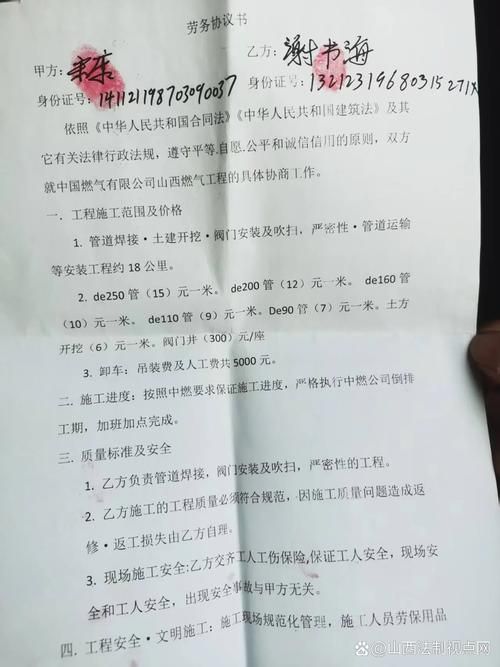 劳务协议书
甲方： 乙方：谢书海
身份证号：141121198703090037 身份证号：
依照《中华人民共和国合同法》《中华人民共和国建筑法》及其
它有关法律行政法规，遵守平等.自愿.公平和诚信信用的原则，双方
就中国燃气有限公司山西燃气工程的具体协商工作。
一．工程施工范围及价格
1. 管道焊接·土建开挖·阀门安装及吹扫，严密性·管道运输
等安装工程约 18 公里。
2. de250 管（15）元一米。 de200 管（12）元一米。 de160 管
（10）元一米。 de110 管（9）元一米。De90 管（7）元一米。土方
开挖（6）元一米。阀门井（300）元/座
3. 卸车：吊装费及人工费共 5000 元。
二. 施工进度：按照中燃要求保证施工进度，严格执行中燃公司倒排
工期，加班加点完成。
三. 质量标准及安全
1. 乙方负责管道焊接，阀门安装及吹扫，严密性的工程。
2. 乙方施工的工程质量必须符合规范，因施工质量问题造成返
修·返工损失由乙方自理。
3. 现场施工安全:乙方交齐工人工伤保险,保证工人安全，现场安
全和工人安全，出现安全事故与甲方无关。
四. 工程安全·文明施工：施工现场规范化管理，施工人员劳保用品
山西法制视点网